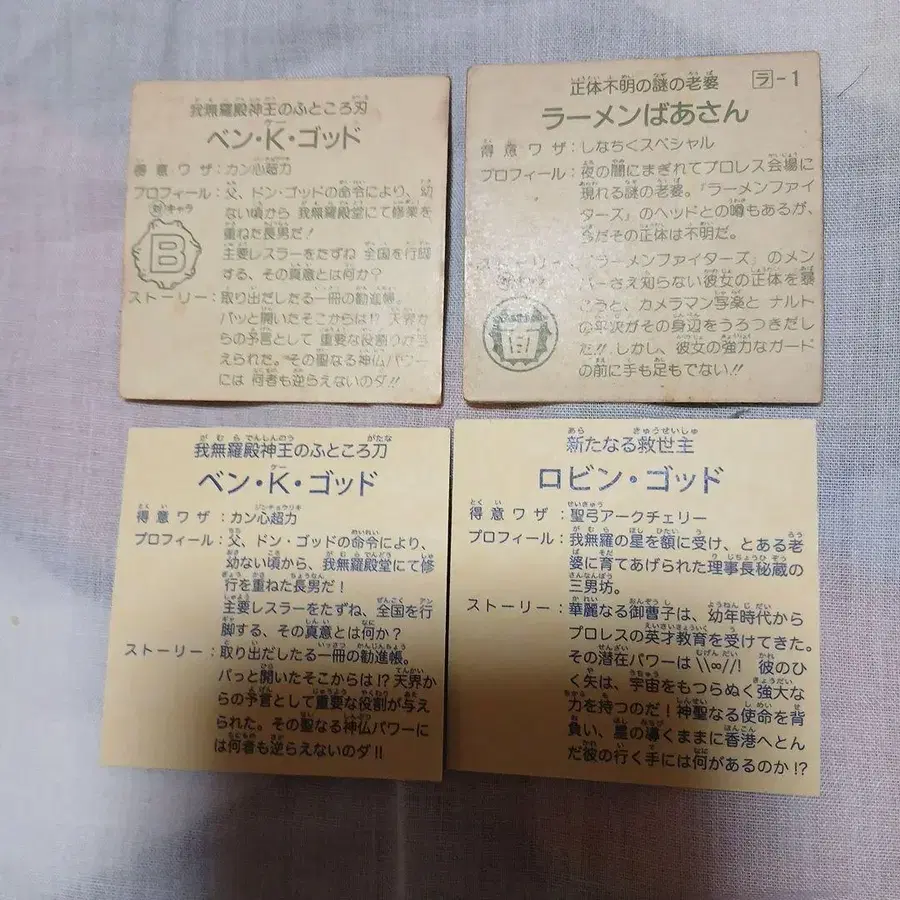 我無羅殿神王のふところ刃
ベン・K・ゴッド
得意ワザ:カン心超力
プロフィール:父、ドン・ゴッドの命令により、幼
ない頃から 我無羅殿堂にて修業を
重ねた長男だ!
主要レスラーをたずね 全国を行脚
する、その真意とは何か?
キャラ
B
ストーリー:取り出だしたる一冊の勧進帳。
パッと開いたそこからは!? 天界か
らの予言として 重要な役割りが与
えられた。その聖なる神仏パワー
には 何者も逆らえないのダ!!
正体不明の謎の老婆
ラ-1
ラーメンばあさん
得意ワザ:しなちくスペシャル
プロフィール:夜の闇にまぎれてプロレス会場に
現れる謎の老婆。『ラーメンファイ
ターズ』のヘッドとの噂もあるが、
だその正体は不明だ。
ストーリー:『ラーメンファイターズ』のメン
バーさえ知らない彼女の正体を暴
こうと、カメラマン写楽と ナルト
の年次がその身辺をうろつきだし
た!! しかし、彼女の強力なガード
の前に手も足もでない!!
キャラ
我無羅殿神王のふところ刀
ベン・K・ゴッド
得意ワザ:カン心超力
プロフィール:父、ドン・ゴッドの命令により、
幼ない頃から、我無羅殿堂にて修
行を重ねた長男だ!
主要レスラーをたずね、全国を行
脚する、その真意とは何か?
ストーリー:取り出だしたる一冊の勧進帳。
パッと開いたそこからは!? 天界か
らの予言として重要な役割が与え
られた。その聖なる神仏パワーに
は何者も逆らえないのダ!!
新たなる救世主
ロビン・ゴッド
得意ワザ:聖弓アークチェリー
プロフィール:我無羅の星を額に受け、とある老
婆に育てあげられた理事長秘蔵の
三男坊。
ストーリー:華麗なる御曹子は、幼年時代から
プロレスの英才教育を受けてきた。
その潜在パワーは\\∞//! 彼のひ
く矢は、宇宙をもつらぬく強大な
力を持つのだ!神聖なる使命を背
負い、星の導くままに香港へとん
だ彼の行く手には何があるのか!?